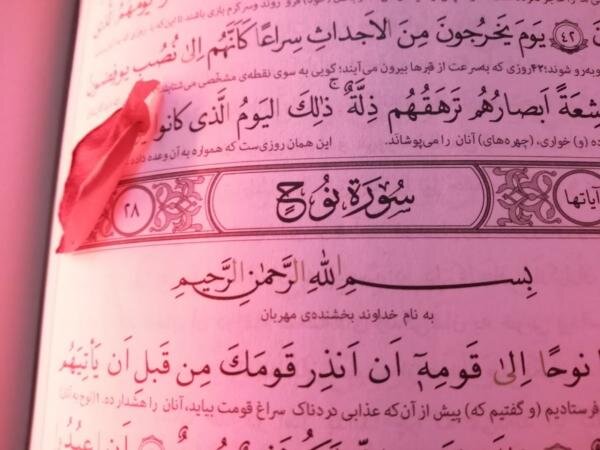 ﴿۴۲﴾ یَومَ یَخرُجونَ مِنَ الاَجداثِ سِراعًا کَاَنَّهُم اِلیٰ نُصُبٍ یوفِضونَ
رو‌به‌رو شوند؛ ۴۲ روزی که به‌سرعت از قبرها بیرون می‌آیند؛ گویی به سوی نقطه‌ی مشخصی
اَبصارُهُم تَرهَقُهُم ذِلَّةٌ ۚ ذٰلِکَ الیَومُ الَّذی کانوا
(و) خواری، (چهره‌های) آنان را می‌پوشاند. این همان روزی‌ست که همواره به آن وعده
آیاتها سُورَةُ نُوحٍ ۲۸
بِسمِ اللهِ الرَّحمٰنِ الرَّحیمِ
به نام خداوند بخشنده‌ی مهربان
نوحًا اِلیٰ قَومِهٖٓ اَن اَنذِر قَومَکَ مِن قَبلِ اَن یَأتِیَهُم
فرستادیم (و گفتیم که) پیش از آن‌که عذابی دردناک سراغ قومت بیاید، آنان را هشدار ده.